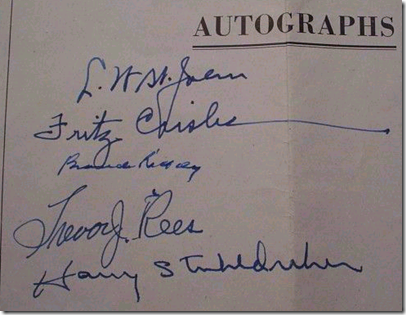 AUTOGRAPHS
L. W. St. John
Fritz Crisler
Branch Rickey
Trevor J. Rees
Harry Stuhldreher